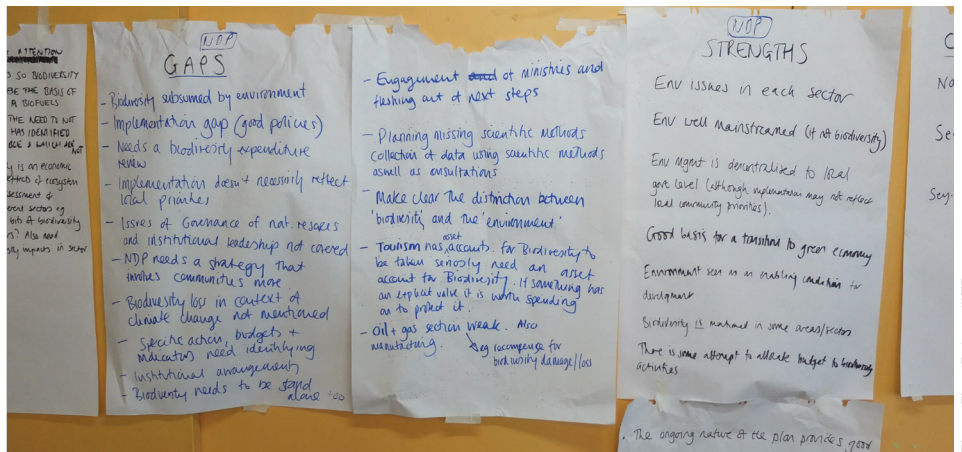 ATTENTION
SO BIODIVERSITY
BE THE BASIS OF
A BIOFUELS
THE NEED TO NOT
HAS IDENTIFIED
WHICH ARE
NOT
is an economic
of ecosystem
sessment of
erent sectors eg
bits of biodiversity
? Also need
impacts in sector
NDP
GAPS
- Biodiversity subsumed by environment
- Implementation gap (good policies)
- Needs a biodiversity expenditure
review
- Implementation doesn't necessarily reflect
local priorities
- Issues of Governance of nat. resources
and institutional leadership not covered
- NDP needs a strategy that
involves communities more.
- Biodiversity loss in context of
climate change not mentioned
- Specific action, budgets +
indicators need identifying
- Institutional arrangements
- Biodiversity needs to be stand
alone too
- Engagement and of ministries and
fleshing out of next steps
- Planning missing scientific methods
collection of data using scientific methods
aswell as consultations
- Make clear the distinction between
'biodiversity' and the 'environment'
asset
- Tourism has accounts. for Biodiversity to
be taken seriously need an asset
account for Biodiversity. If something has
an explicit value it is worth spending
on to protect it.
- Oil + gas section weak. Also
manufacturing.
eg recompense for
biodiversity damage/loss
NDP
STRENGTHS
Env issues in each sector
Env well mainstreamed (if not biodiversity)
Env mgmt is decentralised to local
govt level (although implementation may not reflect
local community priorities).
Good basis for a transition to green economy
Environment seen as an enabling condition for
development
Biodiversity is mentioned in some areas/sectors
There is some attempt to allocate budget to biodiversity
activities
. The ongoing nature of the plan provides good
C
No
Se
Sey-